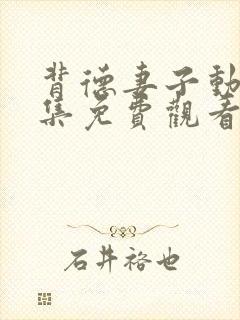 背德妻子動
集免費觀看
石井裕也